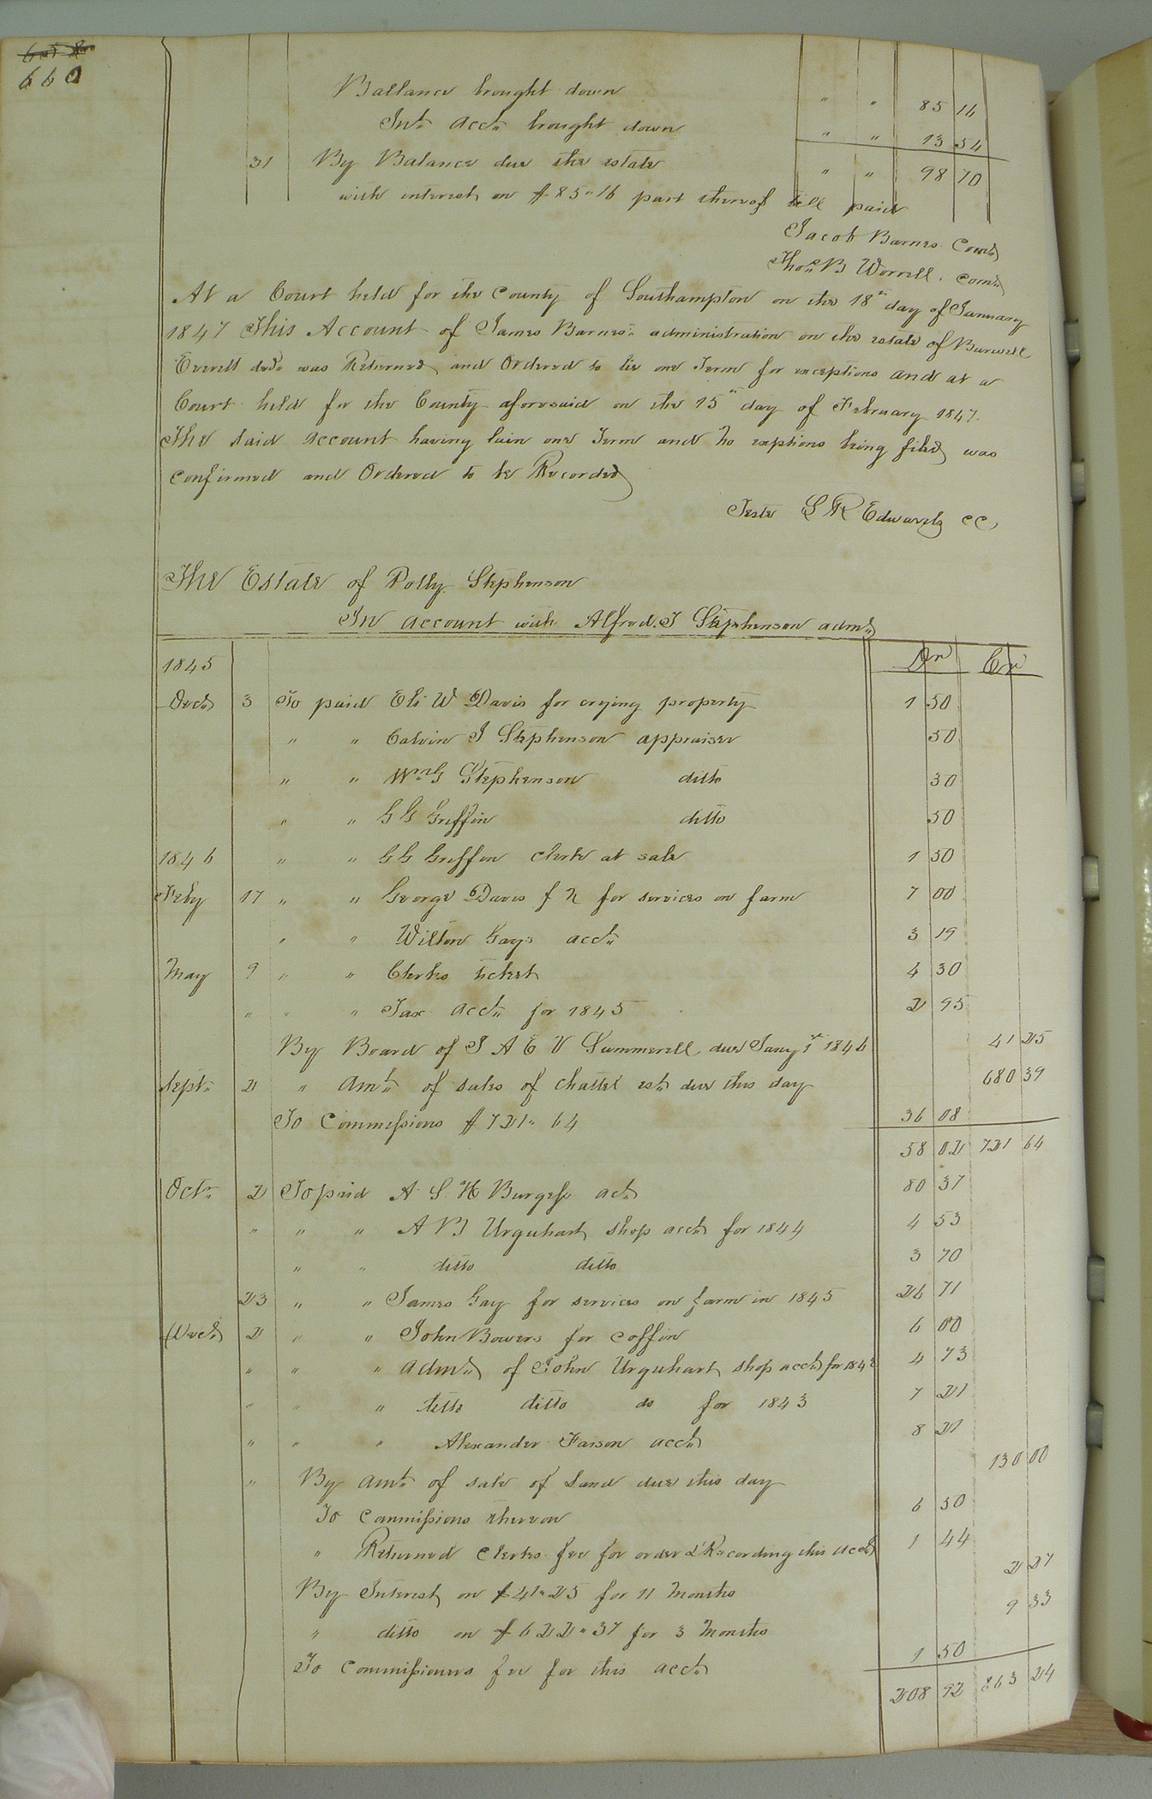 660
Ballance brought down " " 85 16
Int. acct. brought down " " 13 54
31 By Balance due the estate " " 98 70
with interest on $85"16 part thereof till paid
Jacob Barnes Comr
Thos. B Worrell. Comr
At a Court held for the County of Southampton on the 18th day of January
1847 This Account of James Barnes's administration on the estate of Burwell
Everett decd. was Returned and Ordered to lie one Term for exceptions and at a
Court held for the County aforesaid on the 15th day of February 1847.
The said account having lain one Term and no exptions being filed was
confirmed and Ordered to be Recorded
Teste L R Edwards CC
The Estate of Polly Stephenson
In account with Alfred. J Stephenson admr.
1845 Dr Cr
Decr 3 To paid Eli W Davis for crying property 1 50
" " Calvin J Stephenson appraiser 50
" " Wm G Stephenson ditto 50
" " G G Griffin ditto 50
1846 " " G G Griffin clerk at sale 1 50
Feby 17 " " George Davis f n for services on farm 7 00
" " Wilton Gays acct. 3 19
May 9 " " Clerks ticket 4 30
" " " Tax acct. for 1845 2 95
By Board of S A E V Summerell due Jany 1st 1846 41 25
Sept. 2 " amt. of sales of chattel est. due this day 680 39
To Commissions $721" 64 36 08
58 02 721 64
Oct. 2 To paid A S H Burgess act 80 37
" " " A B Urquhart shop acct for 1844 4 53
" " ditto ditto 3 70
23 " " James Gay for services on farm in 1845 26 71
Decr 2 " " John Bowers for coffin 6 00
" " " admr. of John Urquhart shop acct for 4 73
" " " ditto ditto do for 1843 7 21
" " " Alexander Faison acct 8 21
" By amt. of sale of Land due this day 130 00
To commissions thereon 6 50
" Returned Clerks fee for order & Recording this acct 1 44
By Interest on $41"25 for 11 months 2 27
" ditto on $622"37 for 3 Months 9 33
To commissioners fee for this acct. 1 50
208 92 863 24